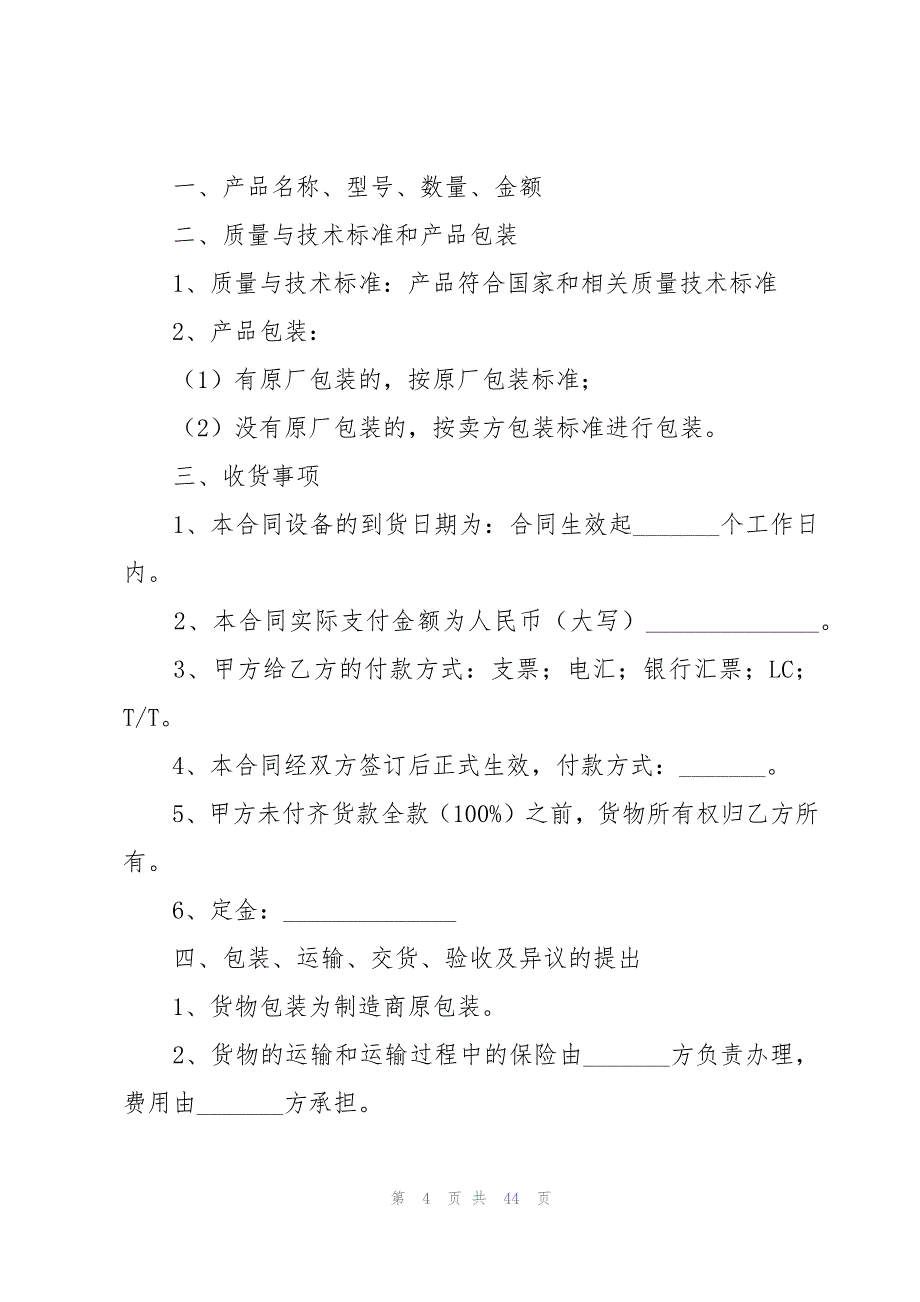 一、产品名称、型号、数量、金额
二、质量与技术标准和产品包装
1、质量与技术标准：产品符合国家和相关质量技术标准
2、产品包装：
（1）有原厂包装的，按原厂包装标准；
（2）没有原厂包装的，按卖方包装标准进行包装。
三、收货事项
1、本合同设备的到货日期为：合同生效起_______个工作日
内。
2、本合同实际支付金额为人民币（大写）______________。
3、甲方给乙方的付款方式：支票；电汇；银行汇票；LC；
T/T。
4、本合同经双方签订后正式生效，付款方式：_______。
5、甲方未付齐货款全款（100%）之前，货物所有权归乙方所
有。
6、定金：______________
四、包装、运输、交货、验收及异议的提出
1、货物包装为制造商原包装。
2、货物的运输和运输过程中的保险由_______方负责办理，
费用由_______方承担。
第 4 页 共 44 页